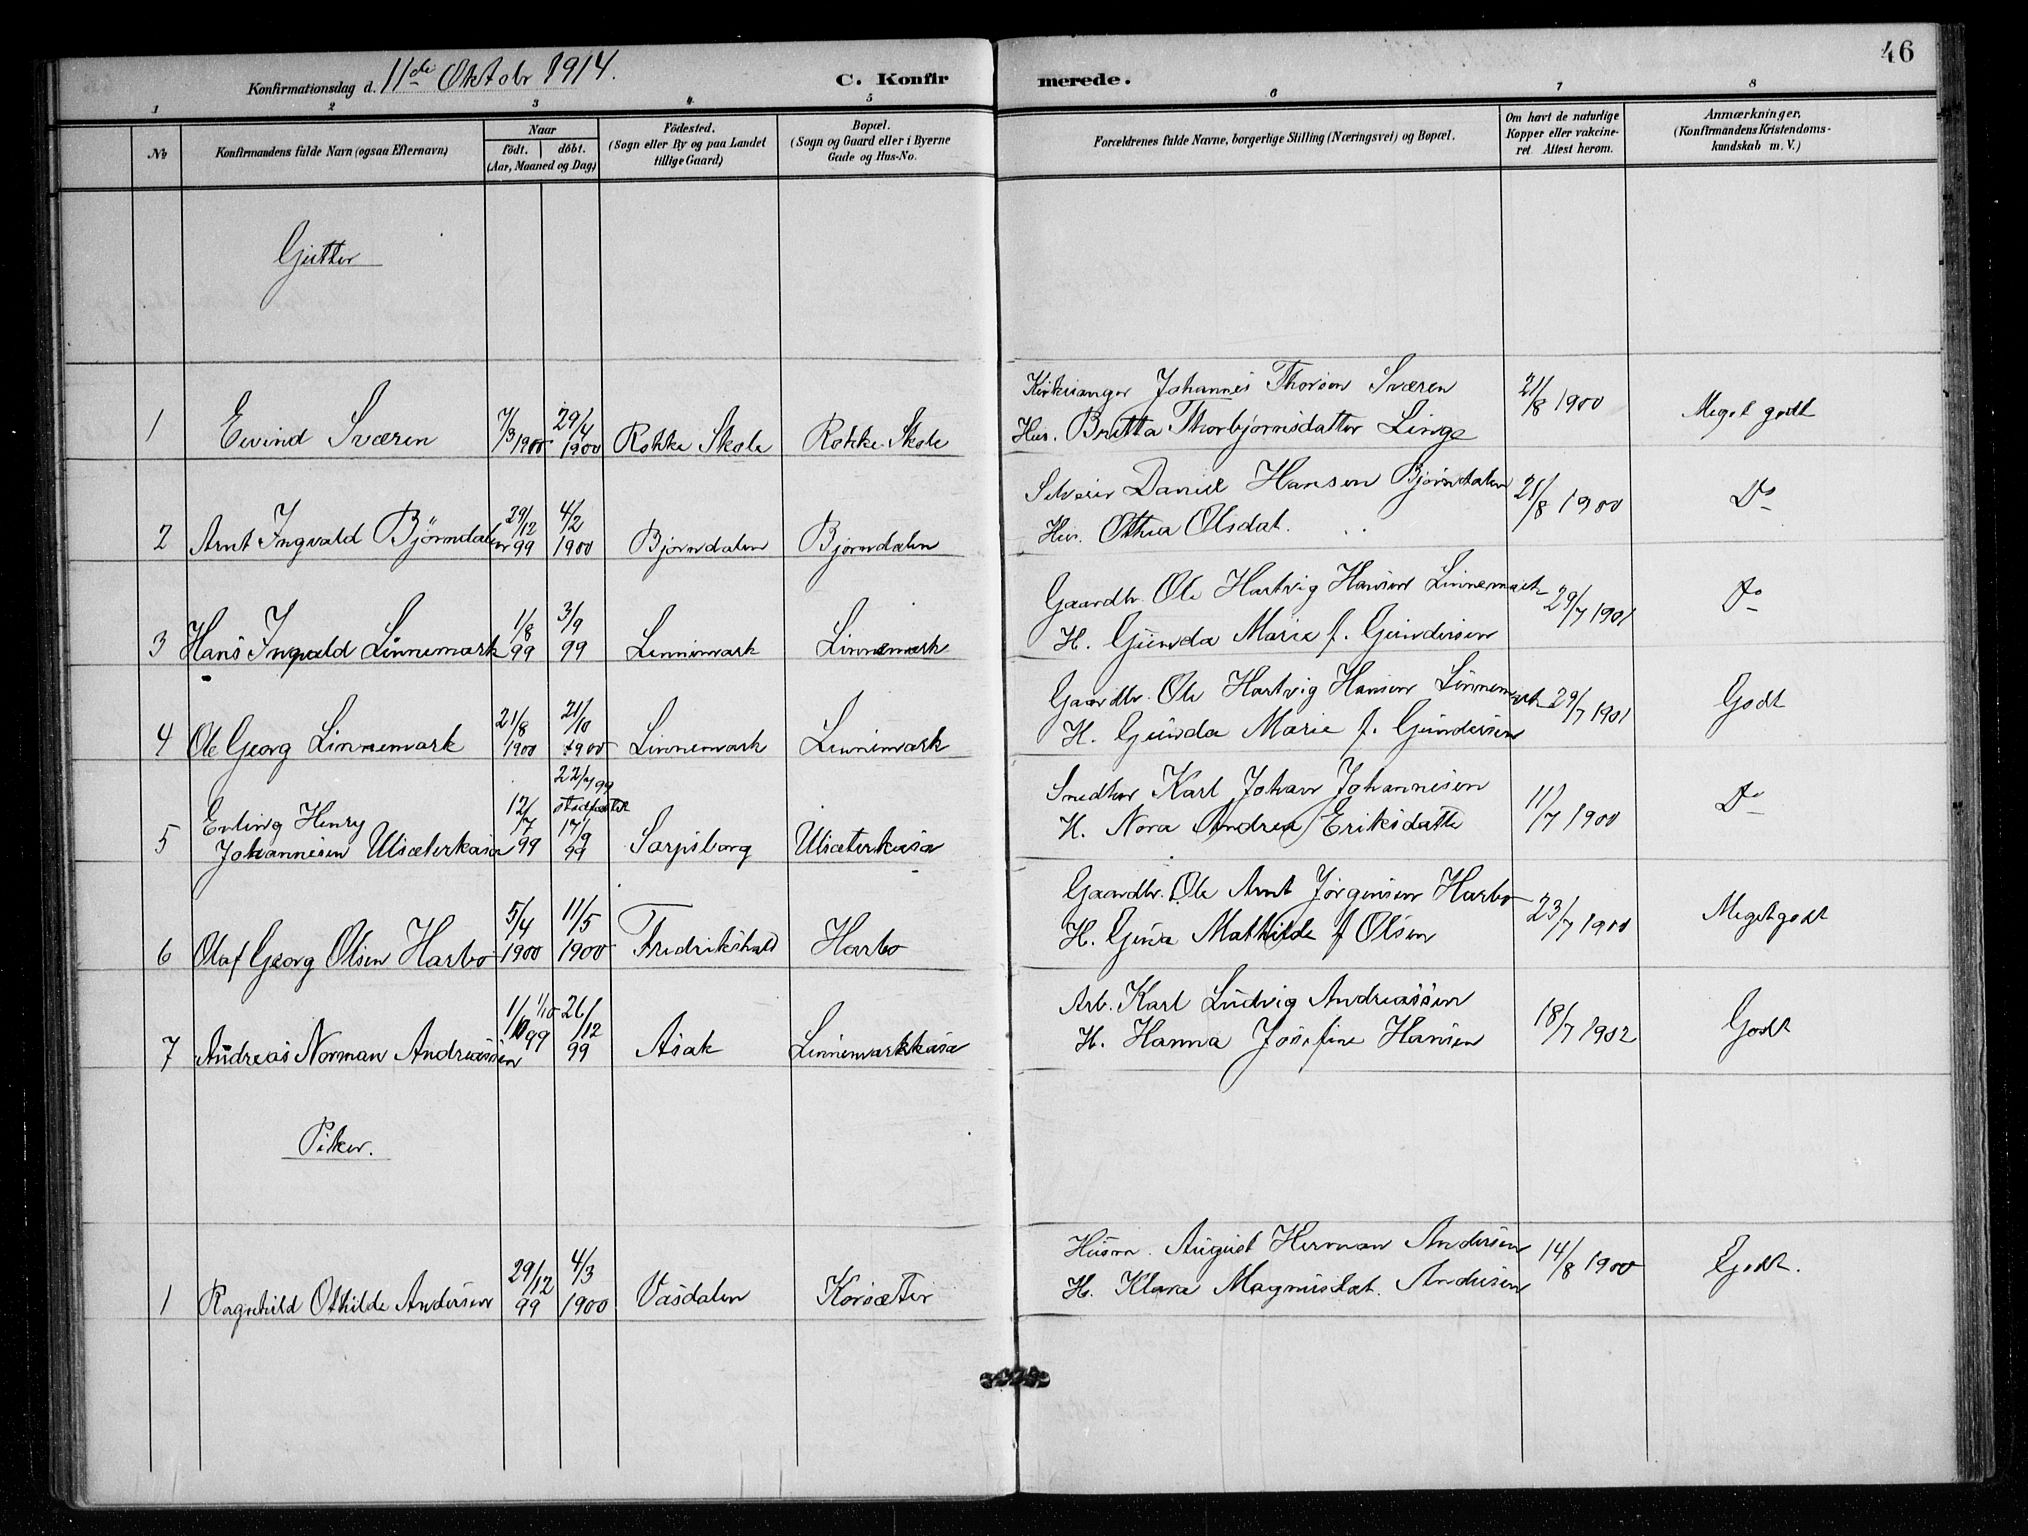 46
Konfirmationsdag d. 11de Oktobr 1914.
C. Konfirmerede.
1 2 3 4 5 6 7 8
No
Konfirmandens fulde Navn (ogsaa Efternavn)
Naar
födt. döbt.
(Aar, Maaned og Dag)
Födested.
(Sogn eller By og paa Landet
tillige Gaard)
Bopæl.
(Sogn og Gaard eller i Byerne
Gade og Hus-No.
Forældrenes fulde Navne, borgerlige Stilling (Næringsvei) og Bopæl.
Om havt de naturlige
Kopper eller vakcine-
ret Attest herom.
Anmærkninger.
(Konfirmandens Kristendoms-
kundskab m. V.)
Gutter
1 Eivind Sværen 7/3 1900 29/4 1900 Rokke Skole Rokke Skole
Kirkesanger Johannes Thorsen Sværen
Hus. Britta Thorbjørnsdatter Linge
21/8 1900 Meget godt
2 Arnt Ingvald Björndalen 29/12 99 4/2 1900 Bjørndalen Bjørndalen
Selveier Daniel Hansen Bjørndalen
Hus. Othea Olsdat.
21/8 1900 Do
3 Hans Ingvald Linnemark 1/8 99 3/9 99 Linnemark Linnemark
Gaardbr. Ole Hartvig Hansen Linnemark
H. Gunda Marie f. Gundersen
29/7 1901 Do
4 Ole Georg Linnemark 21/8 1900 21/10 1900 Linnemark Linnemark
Gaardbr. Ole Hartvig Hansen Linnemark
H. Gunda Marie f. Gundersen
29/7 1901 Godt
5 Erling Henry
Johannesen Ulsæterkasa 12/7 99 22/7 99 stadfæstet 17/9 99 Sarpsborg Ulsæterkasa
Smedhr Karl Johan Johannesen
H. Nora Andrea Eriksdatter
11/7 1900 Do
6 Olaf Georg Olsen Harbo 5/4 1900 11/5 1900 Fredrikshald Harbo
Gaardbr. Ole Arnt Jørgensen Harbo
H. Gina Mathilde f Olsen
23/7 1900 Meget godt
7 Andreas Norman Andreassen 1/10 99 1/10 26/12 99 Asak Linnemarkkasa
Arb. Karl Ludvig Andreassen
H. Hanna Josefine Hansen
18/7 1902 Godt
Piker.
1 Ragnhild Othilde Andersen 29/12 99 4/3 1900 Vasdalen Korsæter
Husm. August Herman Andersen
H. Klara Magnusdat. Andersen
14/8 1900 Godt.